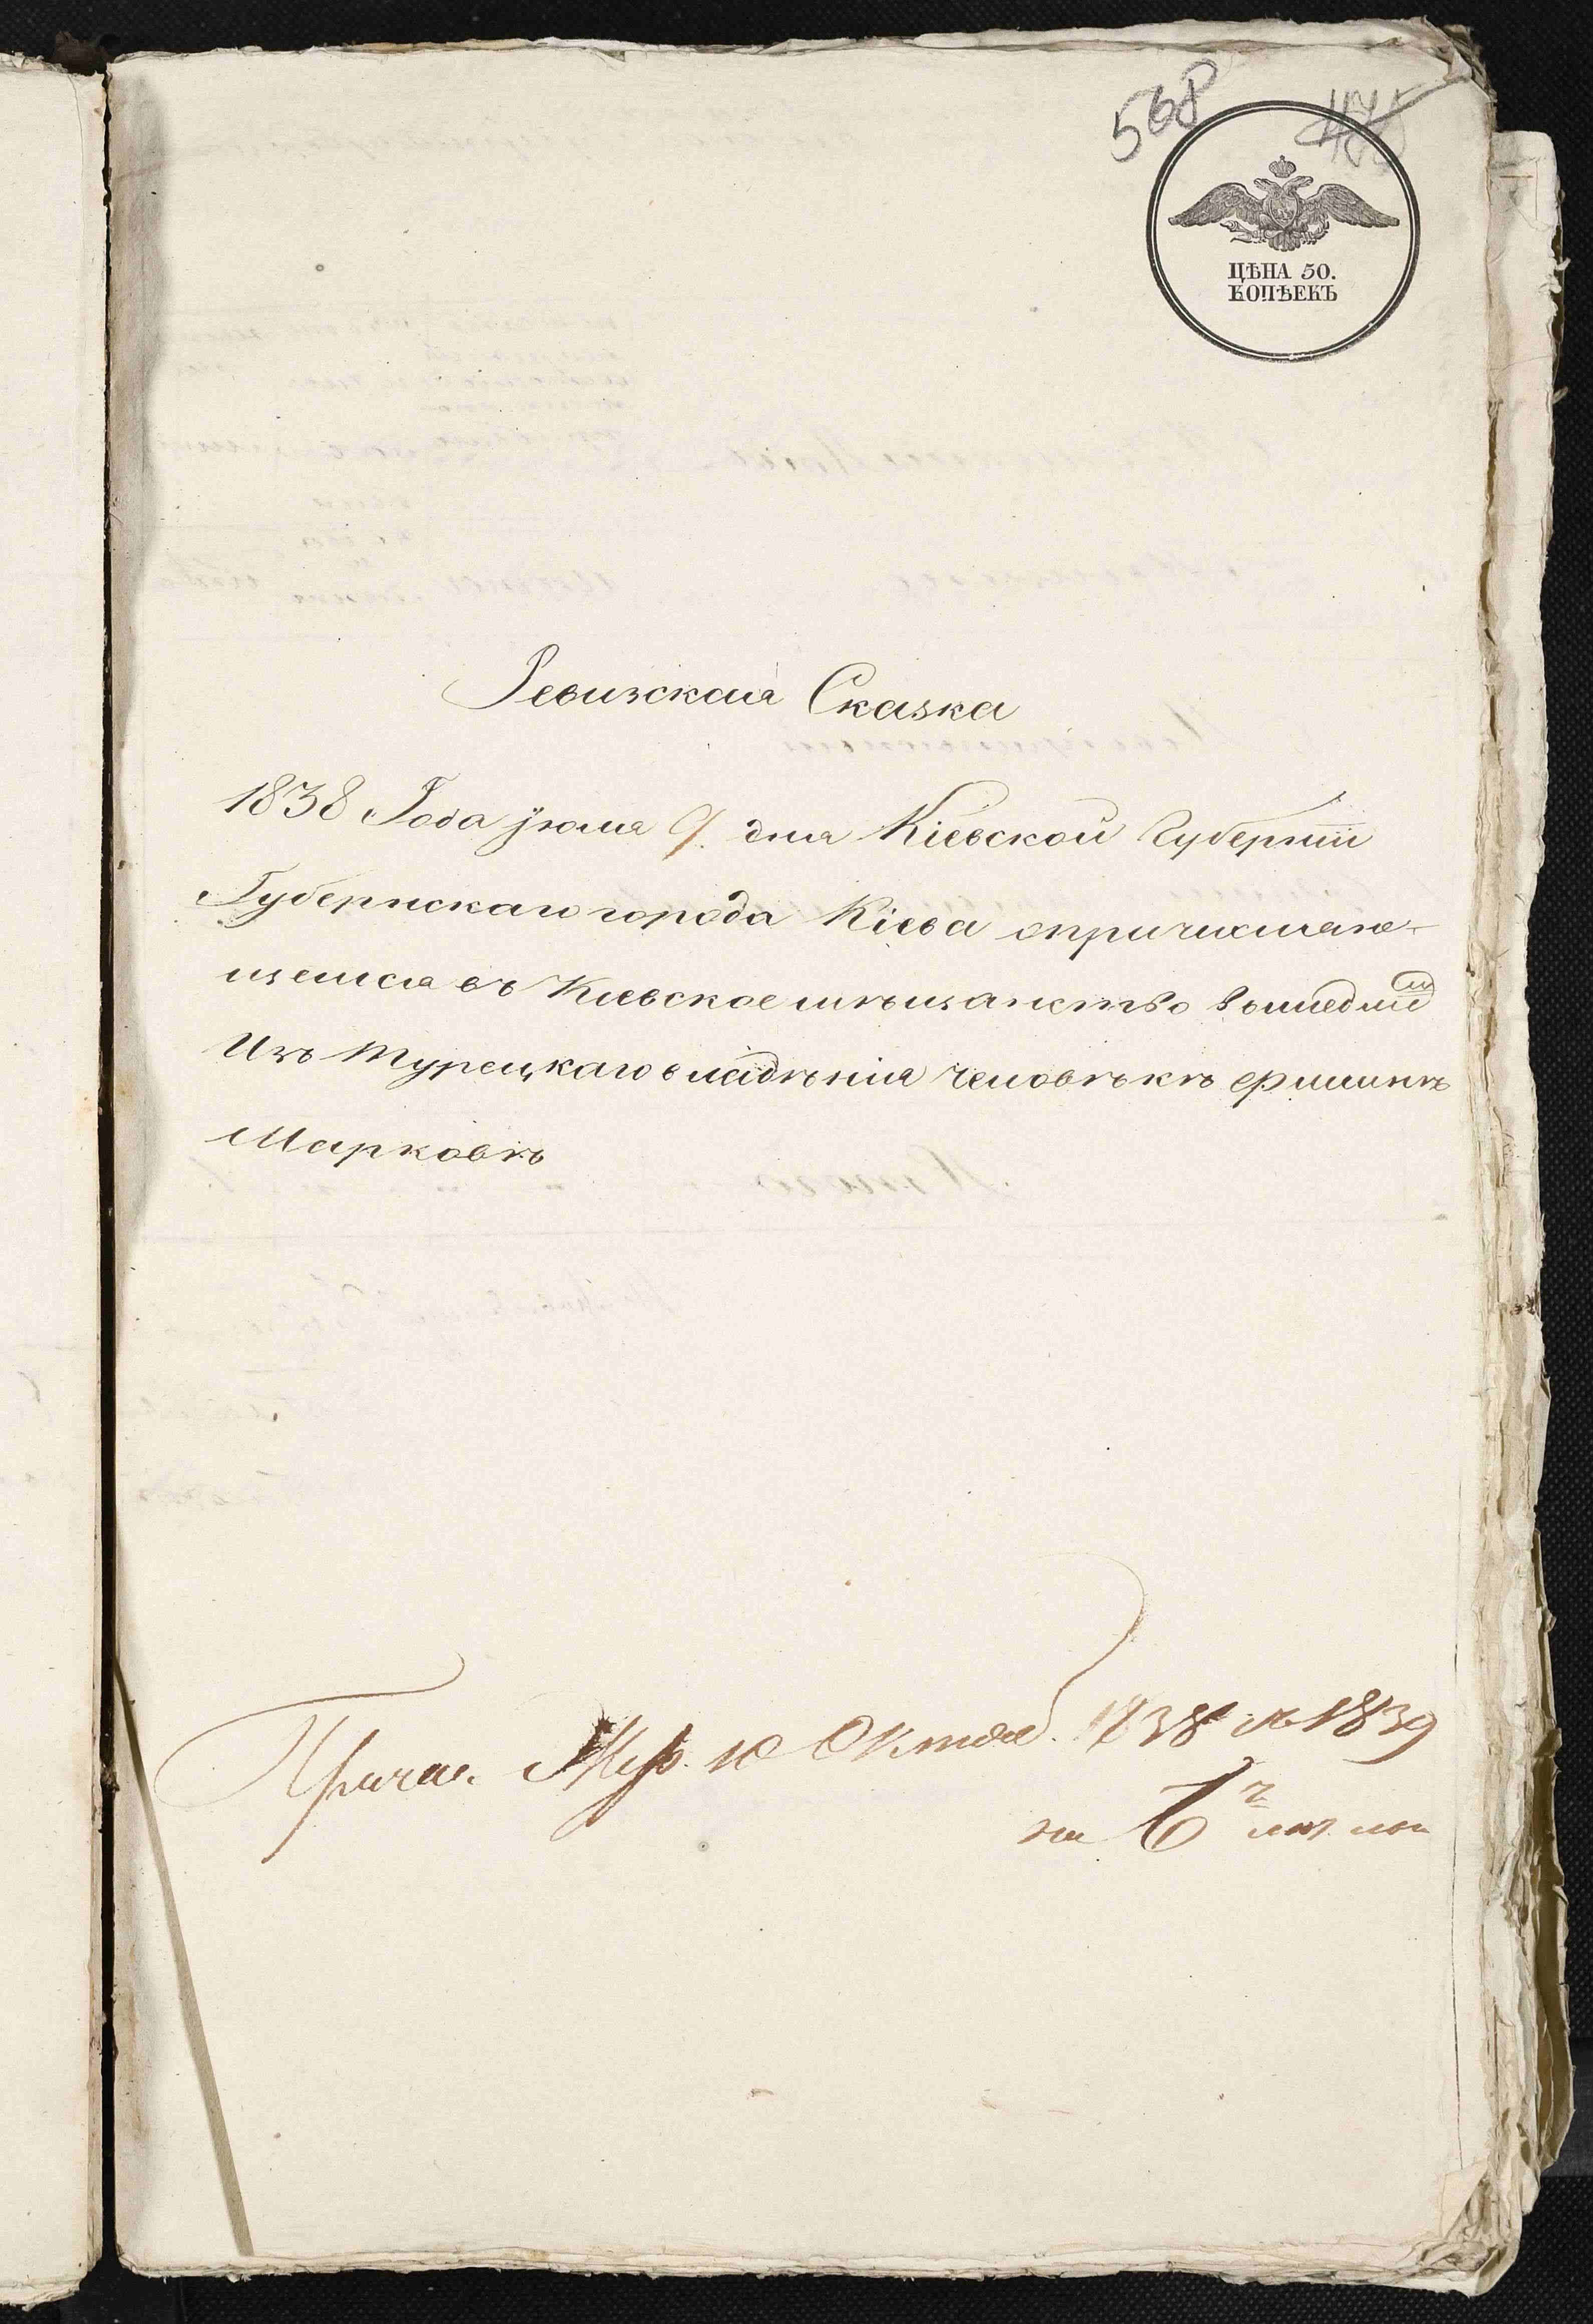 568
ЦѢНА 50.
КОПѢЕКЪ
Ревизская Сказка
1838 Года июля 9. дня Кіевской Губерніи
Губернскаго города Кіева опричисляю-
щемся въ Киевское мѣщанство вышедшемъ
Изъ турецкаго владѣнія человѣкѣ
Марковѣ
Причис. 10 Октяб. 1838 1839
на